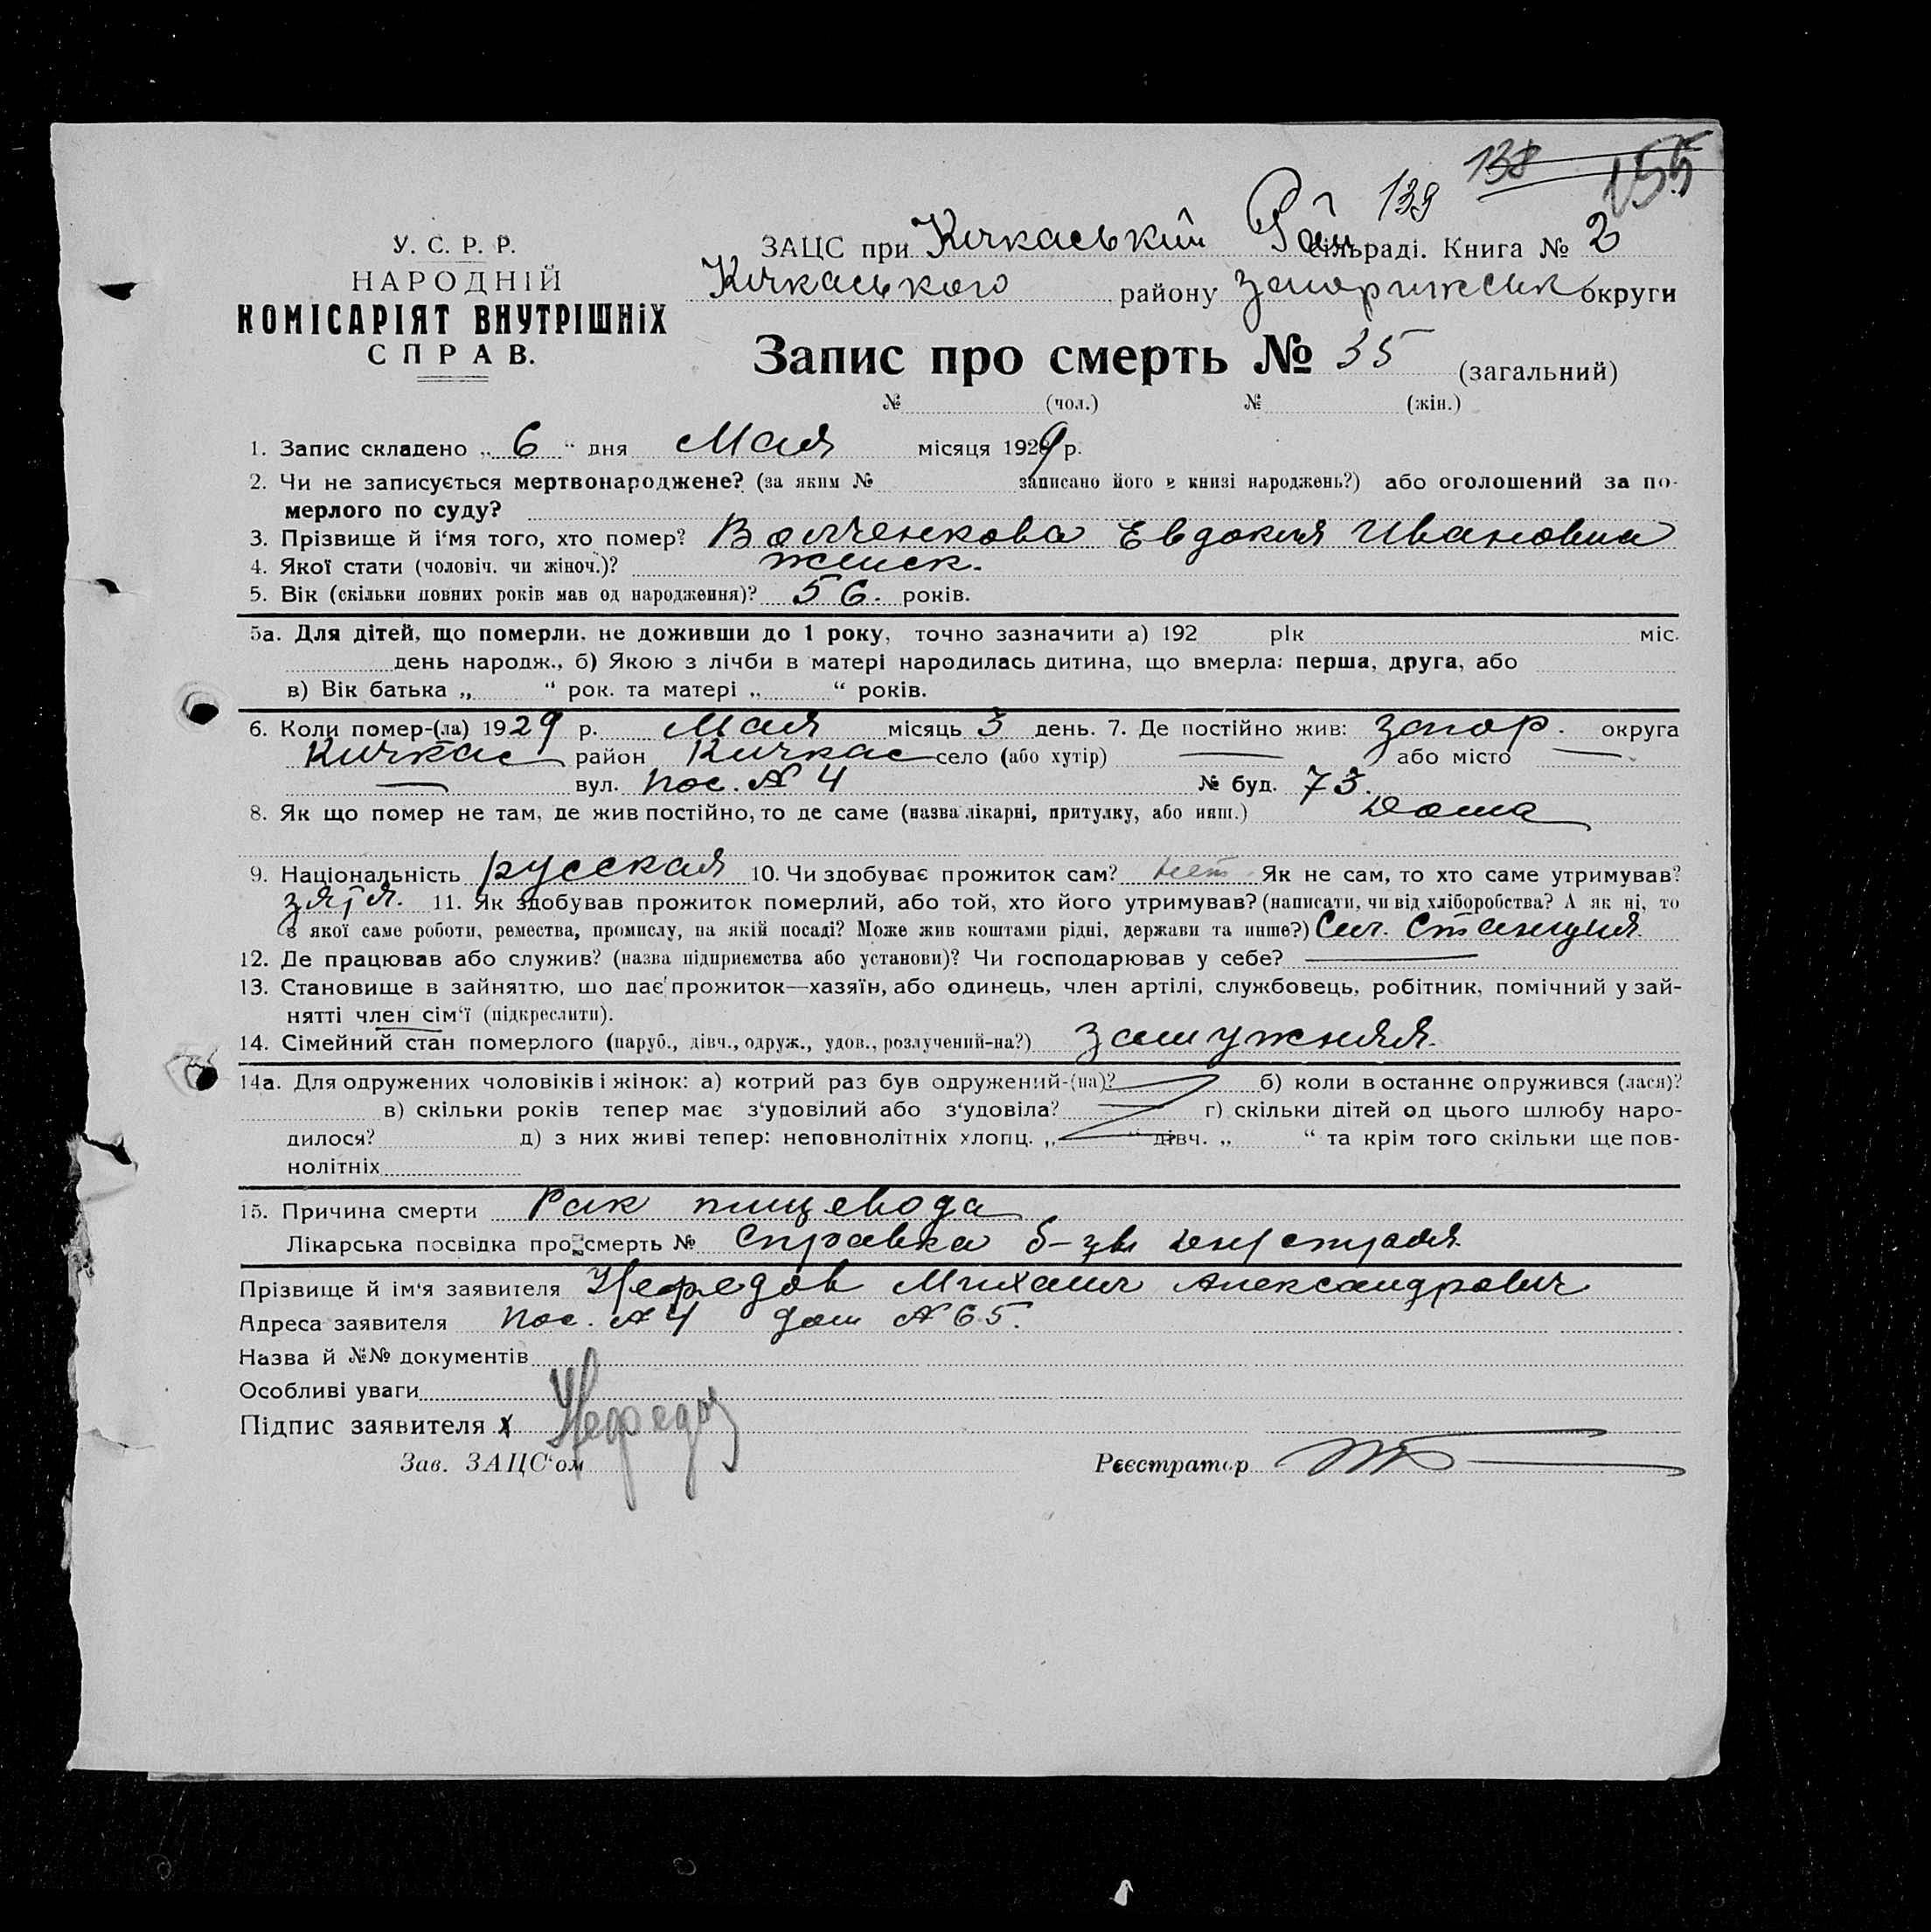 138 155
139
У. С. Р. Р.
НАРОДНІЙ
КОМІСАРІЯТ ВНУТРІШНІХ
СПРАВ.
ЗАЦС при Кічкаський Рай сільраді. Книга № 2
Кічкаського району Запорижськ округи
Запис про смерть № 35 (загальний)
№ (чол.) № (жін.)
1. Запис складено „ 6 “ дня Мая місяця 1929 р.
2. Чи не записується мертвонароджене? (за яким № записано його в книзі народжень?) або оголошений за по-
мерлого по суду?
3. Прізвище й і‘мя того, хто помер? Евдокия Ивановна
4. Якої стати (чоловіч. чи жіноч.)? женск.
5. Вік (скільки повних років мав од народження)? 56. років.
5а. Для дітей, що померли, не доживши до 1 року, точно зазначити а) 192 рік міс.
день народж., б) Якою з лічби в матері народилась дитина, що вмерла: перша, друга, або
в) Вік батька „ “ рок. та матері „ “ років.
6. Коли помер-(ла) 1929 р. Мая місяць 3 день. 7. Де постійно жив: Запор. округа
Кичкас район Кичкас село (або хутір) — або місто —
— вул. пос. № 4 № буд. 73.
8. Як що помер не там, де жив постійно, то де саме (назва лікарні, притулку, або инш.) Дома
9. Національність русская 10. Чи здобуває прожиток сам? нет Як не сам, то хто саме утримував?
зятя. 11. Як здобував прожиток померлий, або той, хто його утримував? (написати, чи від хліборобства? А як ні, то
з якої саме роботи, ремества, промислу, на якій посаді? Може жив коштами рідні, держави та инше?) Станция
12. Де працював або служив? (назва підприємства або установи)? Чи господарював у себе? —
13. Становище в зайняттю, що дає прожиток—хазяїн, або одинець, член артілі, службовець, робітник, помічний у зай-
нятті член сім‘ї (підкреслити).
14. Сімейний стан померлого (паруб., дівч., одруж., удов., розлучений-на?) замужняя.
14а. Для одружених чоловіків і жінок: а) котрий раз був одружений-(на)? б) коли в останнє одружився (лася)?
в) скільки років тепер має з‘удовілий або з‘удовіла? г) скільки дітей од цього шлюбу наро-
дилося? д) з них живі тепер: неповнолітніх хлопц. „ “ дівч. „ “ та крім того скільки ще пов-
нолітніх
15. Причина смерти Рак пищевода
Лікарська посвідка про смерть № Справка б-цы Днепрстроя
Прізвище й ім‘я заявителя Нефедов Михаил Александрович
Адреса заявителя пос. № 4 дом № 65.
Назва й №№ документів
Особливі уваги
Підпис заявителя х Нефедов
Зав. ЗАЦС‘ом Реєстратор